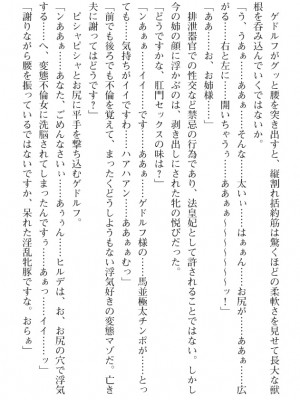 ゲドルフがグッと腰を突き出すと、縦割れ括約筋は驚くほどの柔軟さを見せて長大な獣
根を呑み込んでいくではないか。
「う、うあぁ……あぁぁ……そんな……太いぃ……はぁぁん……お尻が……ああぁ……広
がる……右と左に……開いちゃうぅ……あぁぁぁ～～～～～ッ！」
「ああ……お、お姉様……」
排泄器官での性交など禁忌の行為であり、法皇妃として許されることではない。しかし
今の姉の顔に浮かぶのは、剥き出しにされた牝の悦びだった。
「どうですかな、肛門セックスの味は？」
「ンあぁぁ……イイ……です……ああぁ……ゲドルフ様の……馬並極太チンポが……とっ
ても、気持ちがイイですわ……ハアハアン……あああぁむっ」
「前でも後ろでも不倫を覚えて、まったくどうしようもない浮気好きの変態マゾだ。亡き
夫に謝ってはどうです？」
ピシャピシャとお尻に平手を撃ち込むゲドルフ。
「ンああぁ……あなた、ごめんなさぃぃ……あぅぅん……ヒルデは、お、お尻の穴で浮気
する……へ、変態不倫女に洗脳されてしまったんですぅ……あぁぁ……イイ……イイッ」
「謝りながら腰を振っているではないですか、呆れた淫乱牝豚ですな。おらぁ」